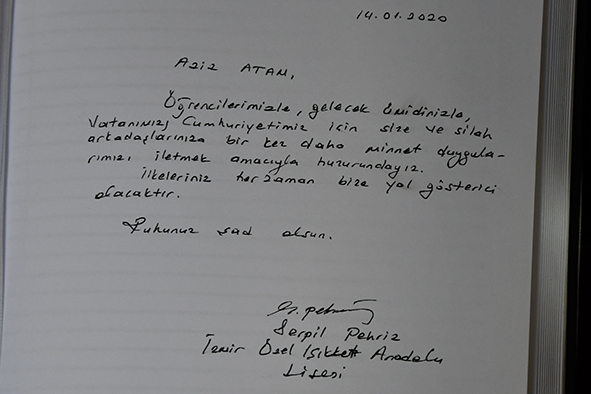 14.01.2020
Aziz ATAM,
Öğrencilerimizle, gelecek ümidinizle,
Vatanımız, Cumhuriyetimiz için size ve silah
arkadaşlarınıza bir kez daha minnet duygula-
rımızı iletmek amacıyla huzurundayız.
İlkeleriniz her zaman bize yol gösterici
olacaktır.
Ruhunuz şad olsun.
Serpil Pehriz
İzmir Özel Işıkkent Anadolu
Lisesi